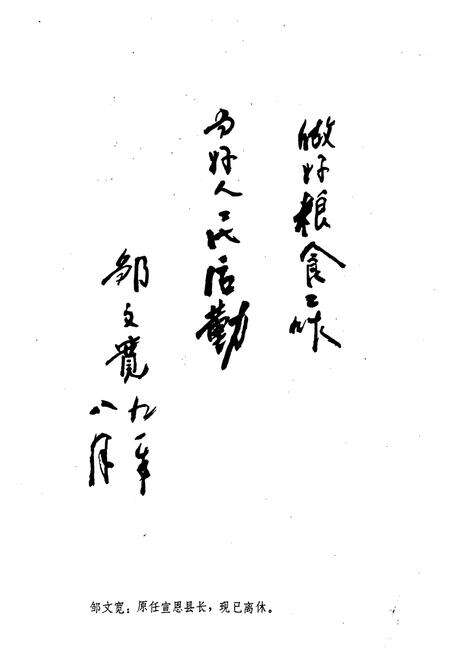 做好粮食工作
为好人民后勤
邹文宽
九一年
八月
邹文宽：原任宣恩县长，现已离休。